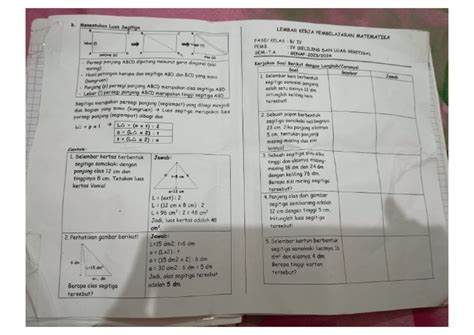 b. Menentukan Luas Segitiga
- Persegi panjang ABCD dipotong menurut garis diagonal (dua
- Hasil potongan bangun dua segitiga ABD dan BCD yang sama
(kongruen)
- Panjang (p) persegi panjang ABCD merupakan alas segitiga ABD
- Lebar (l) persegi panjang ABCD merupakan tinggi segitiga ABD
Segitiga merupakan persegi panjang (segiempat) yang dibagi menjadi
dua bagian yang sama (kongruen) → Luas segitiga merupakan luas
persegi panjang (segiempat) dibagi dua
L▭ = p x l → L△ = (a x t) : 2
a = (L△ x 2) : t
t = (L△ x 2) : a
Contoh:
1. Selembar kertas berbentuk
segitiga samakaki dengan
panjang alas 12 cm dan
tingginya 8 cm. Tetukan luas
kertas Vania!
Jawab:
t = 8 cm
a=12 cm
L = (axt) : 2
L = (12 cm x 8 cm) : 2
L = 96 cm² : 2 = 48 cm²
Jadi, luas kertas adalah 48
cm².
2. Perhatikan gambar berikut!
6 dm
L=15 dm²
Berapa alas segitiga
tersebut?
Jawab:
L=15 dm2; t=6 dm
a = (Lx2) : t
a = (15 dm2 x 2) : 6 dm
a = 30 dm2 : 6 dm = 5 dm
Jadi, alas segitiga tersebut
adalah 5 dm.
LEMBAR KERJA PEMBELAJARAN MATEMATIKA
FASE/ KELAS : B/ IV
PEMB. : IV (KELILING DAN LUAS SEGITIGA)
SEM.-T.A. : GENAP-2023/2024
Kerjakan Soal Berikut dengan Langkah/Caranya!
Soal Gambar Jawab
1. Selembar kain berbentuk
segitiga samakaki panjang
salah satu sisinya 12 dm.
Hitunglah keliling kain
tersebut!
2. Sebuah papan berbentuk
segitiga samakaki kelilingnya
23 cm. Jika panjang alasnya
Hitunglah panjang dua sisi
miringnya!
3. Sebuah segitiga siku-siku
tinggi dan alasnya masing-
masing 18 dm dan 24 dm
dengan keliling 72 dm.
Berapa sisi miring segitiga
tersebut?
4. Panjang alas dari gambar
segitiga sembarang adalah
12 cm dengan tinggi 5 cm.
Hitunglah luas segitiga
tersebut!
5. Selembar karton berbentuk
segitiga samakaki luasnya 16
dm² dan alasnya 4 dm.
Berapa tinggi karton
tersebut?